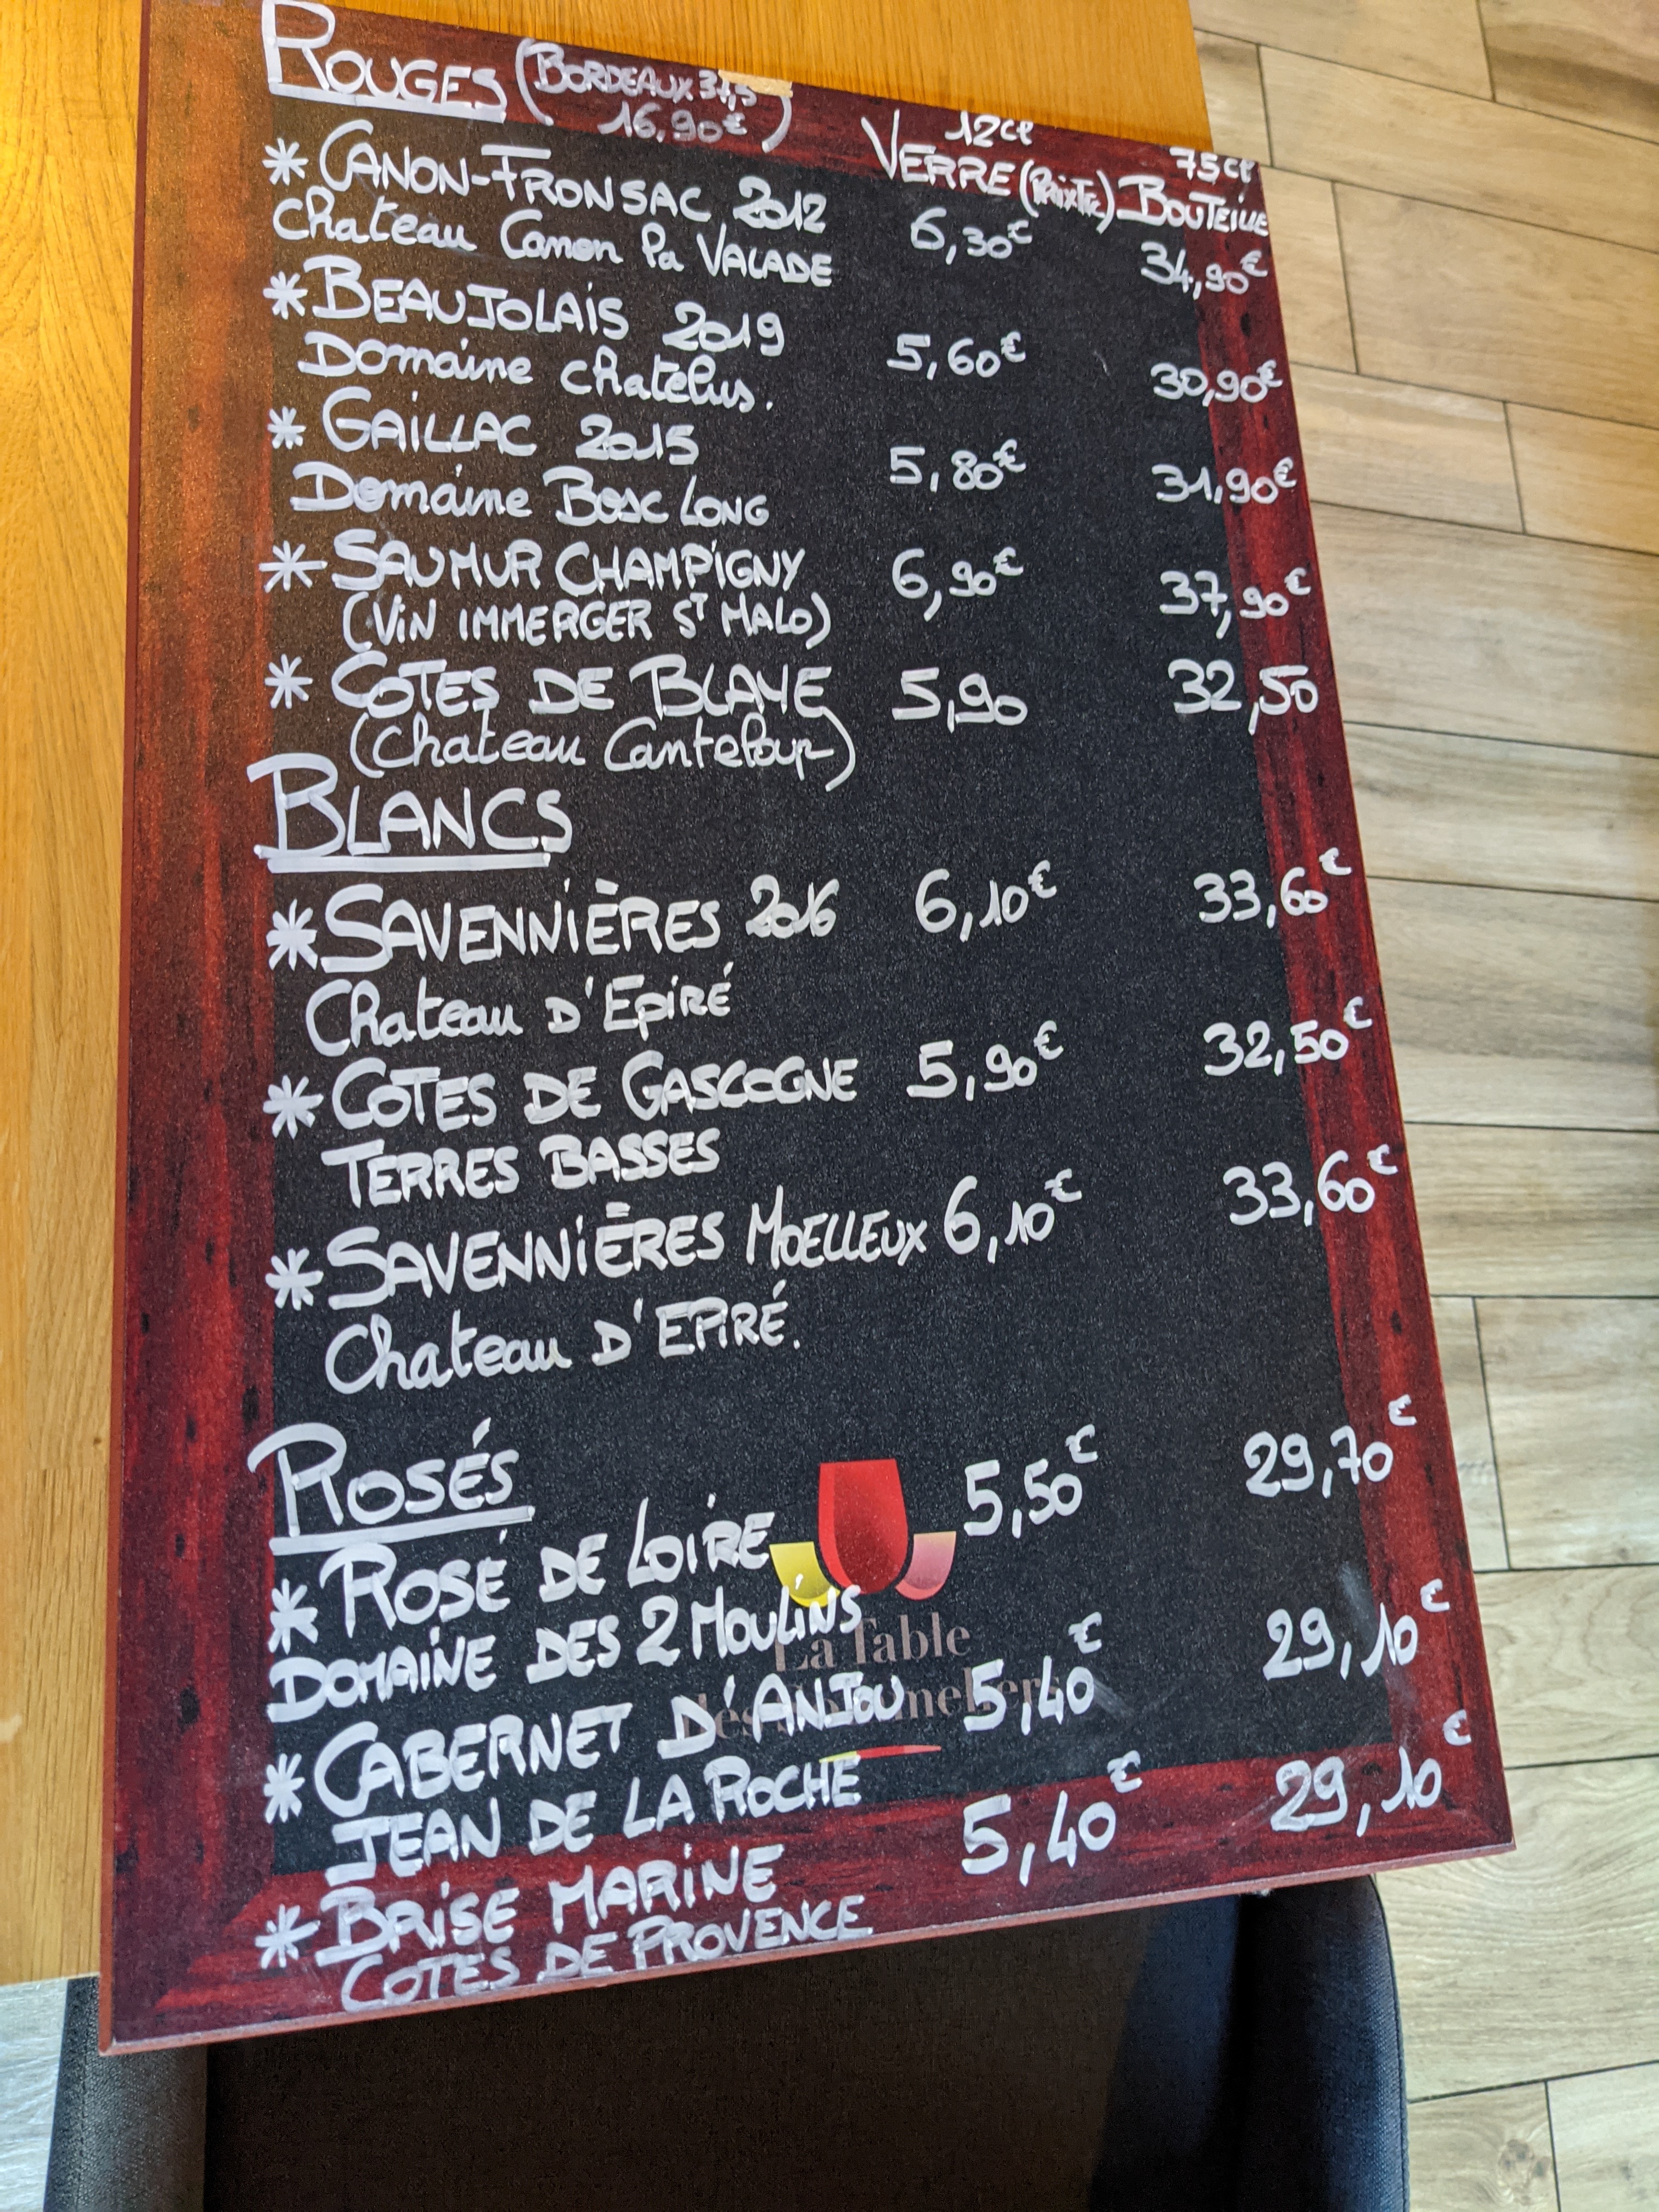 ROUGES (BORDEAUX 37,5
16,90€)
12cl 75cl
VERRE (Prix TTC) BOUTEILLE
* CANON-FRONSAC 2012 6,30€ 34,90€
Chateau Canon la VALADE
* BEAUJOLAIS 2019 5,60€ 30,90€
Domaine chatelus.
* GAILLAC 2015 5,80€ 31,90€
Domaine Bosc LONG
* SAUMUR CHAMPIGNY 6,90€ 37,90€
(VIN IMMERGER ST MALO)
* COTES DE BLAYE 5,90 32,50
(Chateau Canteloup)
BLANCS
* SAVENNIÈRES 2016 6,10€ 33,60€
Chateau D'EPIRÉ
* COTES DE GASCOGNE 5,90€ 32,50€
TERRES BASSES
* SAVENNIÈRES MOELLEUX 6,10€ 33,60€
Chateau D'EPIRÉ.
ROSÉS
* ROSÉ DE LOIRE 5,50€ 29,70€
DOMAINE DES 2 MOULINS
La Table
des Sommeliers
* CABERNET D'ANJOU 5,40€ 29,10€
JEAN DE LA ROCHE
* BRISE MARINE 5,40€ 29,10€
COTES DE PROVENCE